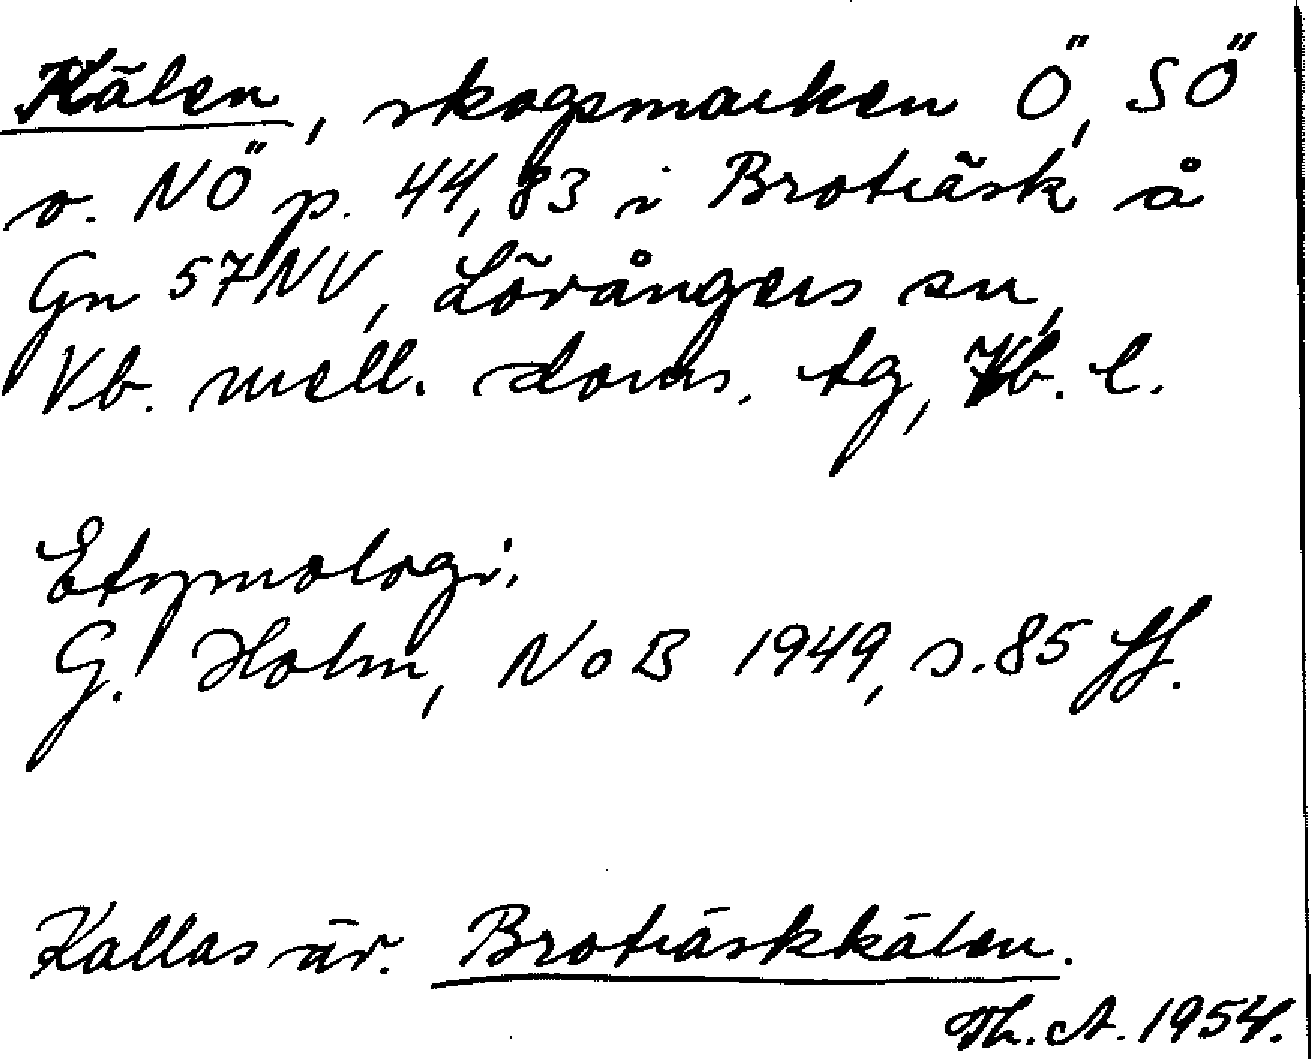 Kälen, skogsmarken Ö, SÖ
o. NÖ p. 44,83 i Broträsk å
Gn 57NV, Lövångers sn,
Vb. mell. doms. tg, Vb. l.
Etymologi:
G. Holm, NoB 1949, s. 85 ff.
Kallas äv. Broträskkälen.
Th. A. 1954.